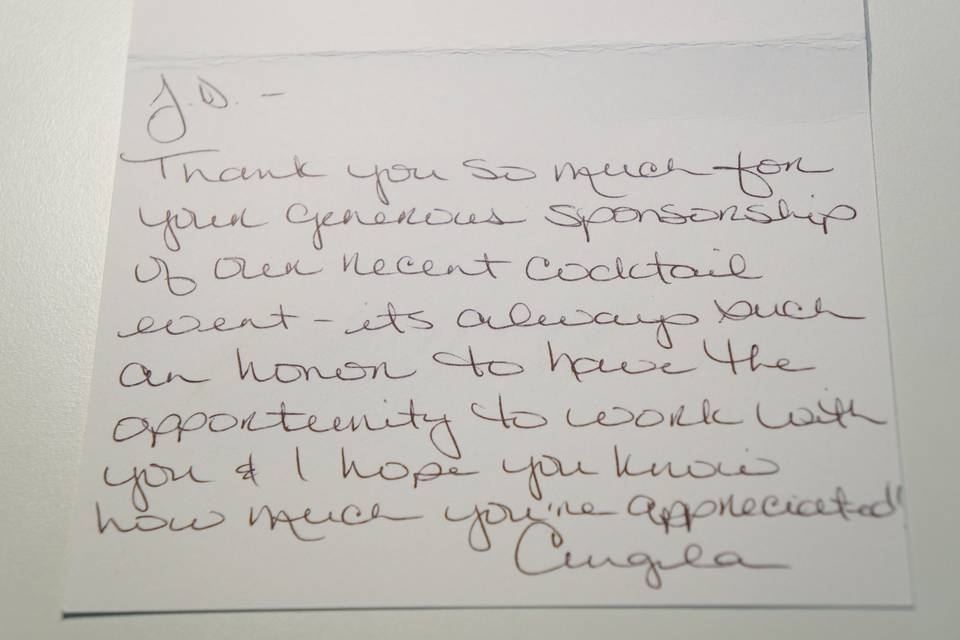 J.D. -
Thank you so much for
your generous sponsorship
of our recent cocktail
event - its always such
an honor to have the
opportunity to work with
you & I hope you know
how much you're appreciated!
Angela